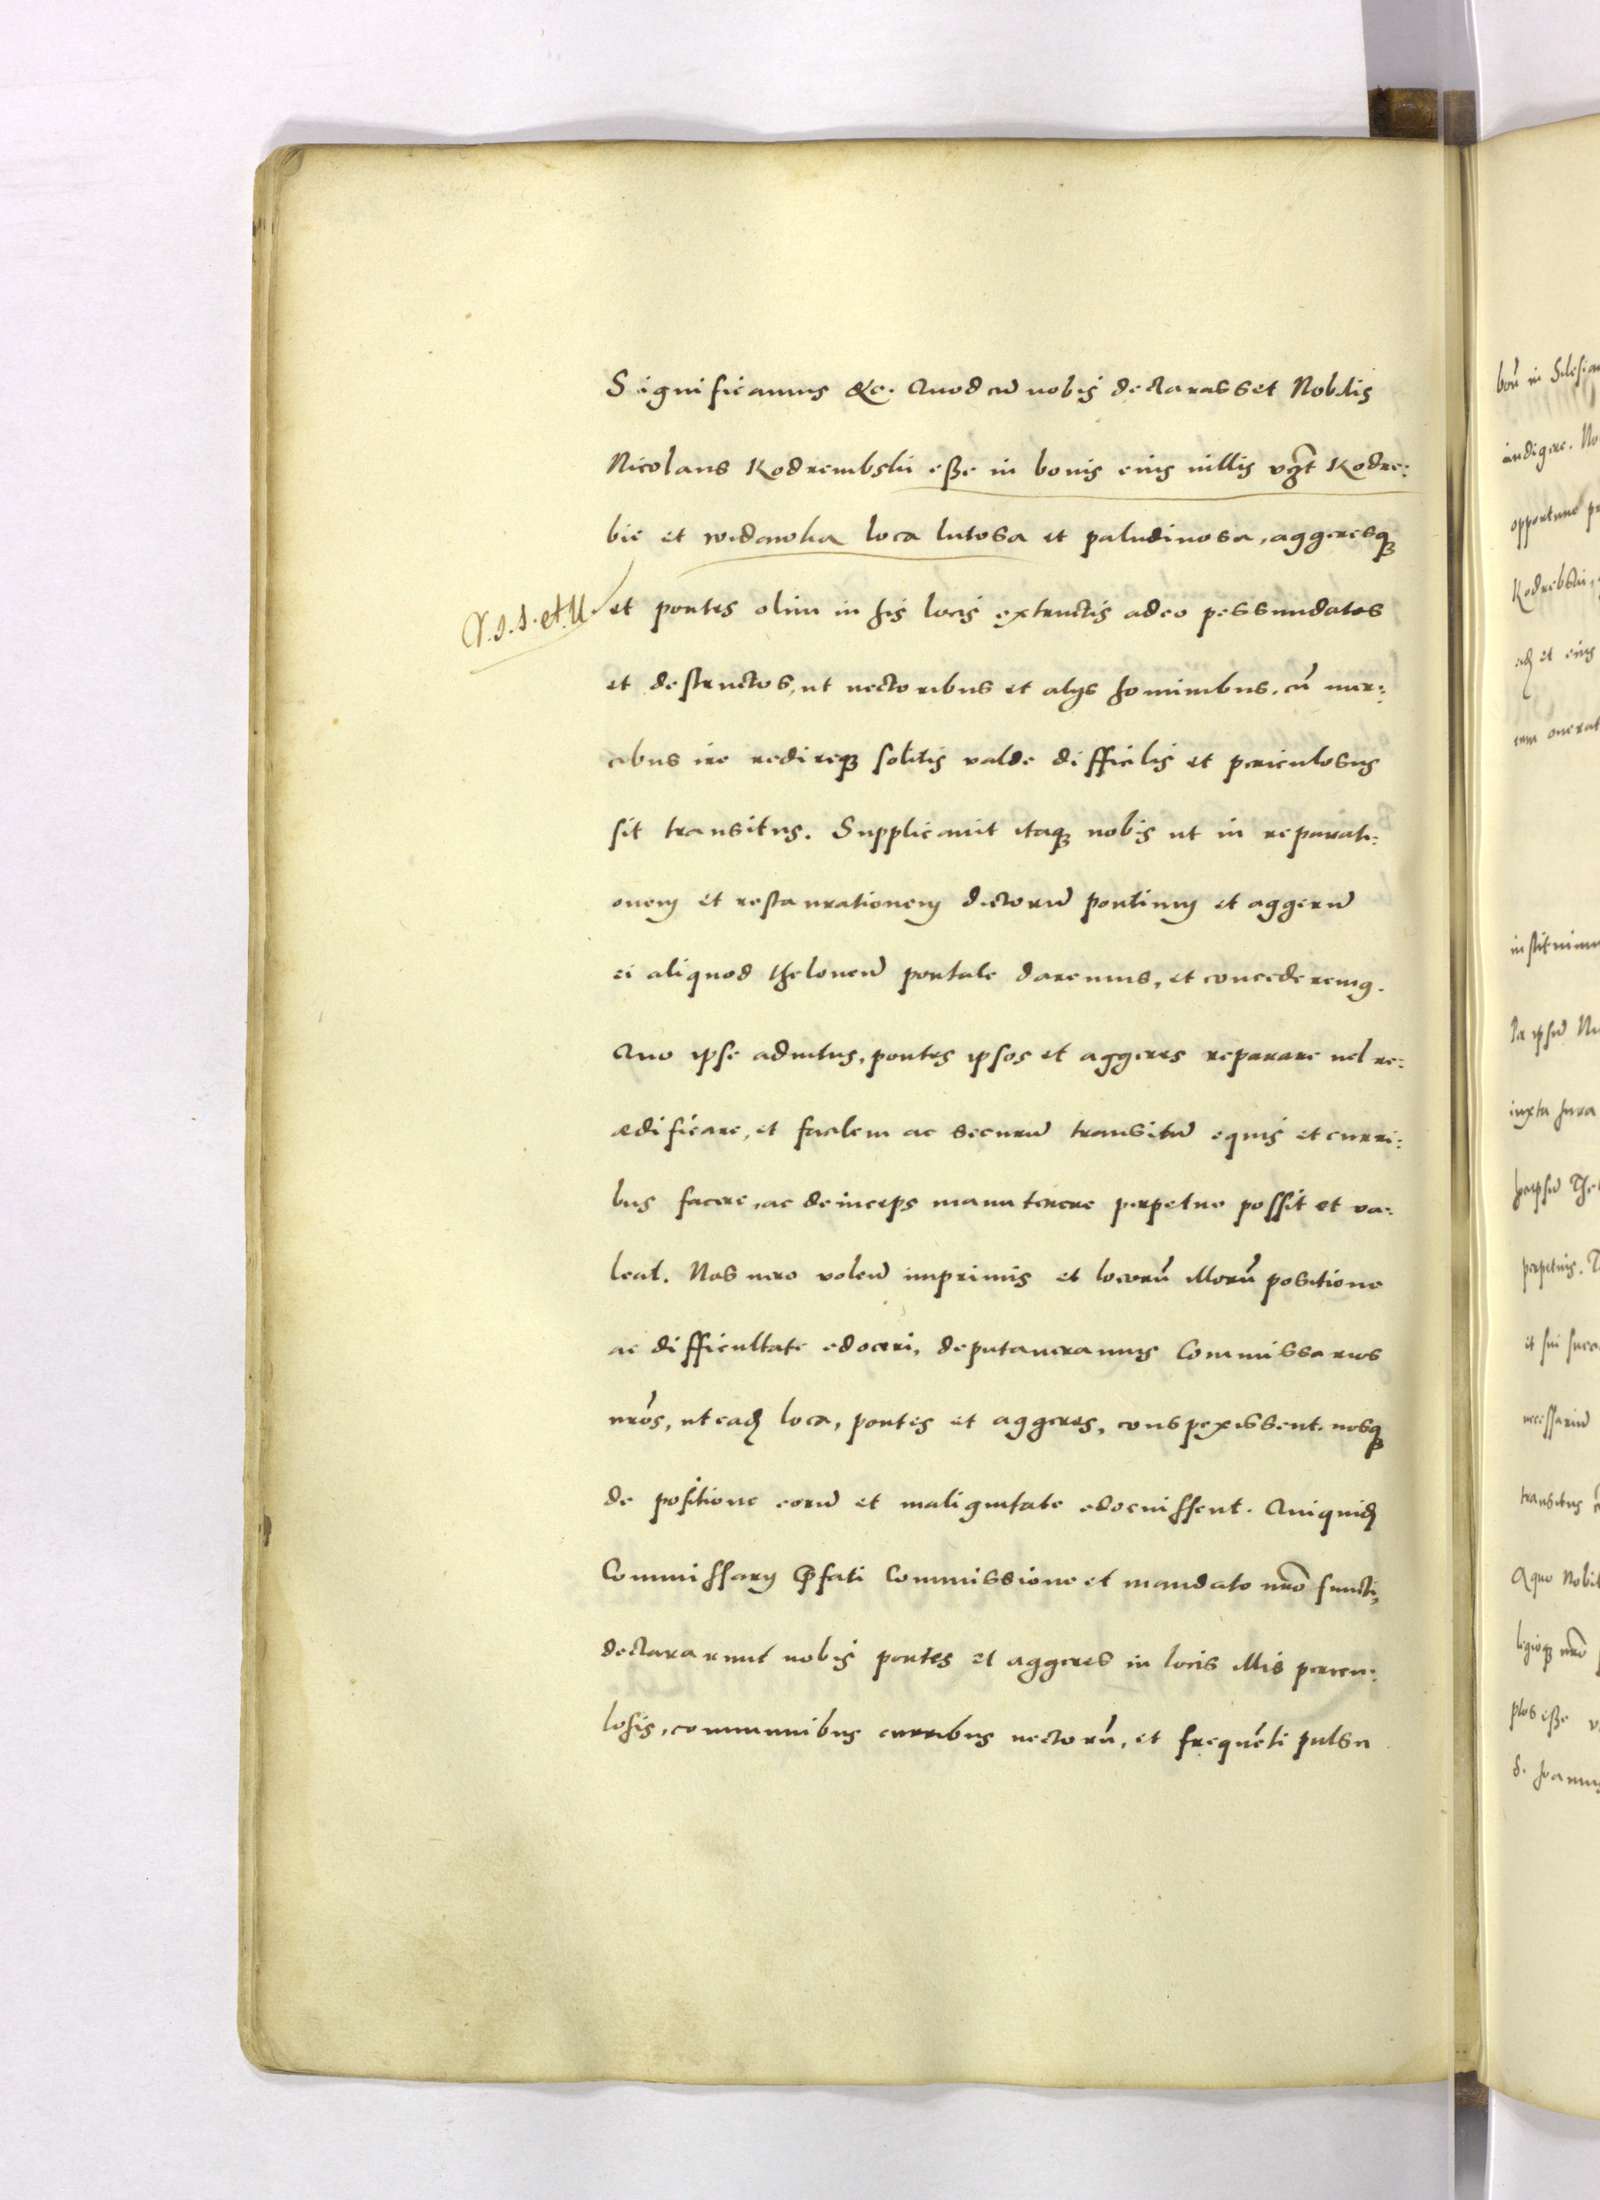 Significamus &c. Quod cū nobis declarasset Nobilis
Nicolaus Kodrembskii eße in bonis eius uillis vcꝫt Kodre:
bie et widawka loca lutosa et paludinosa, aggeresqꝫ
et pontes olim in his locis extructis adeo pessundatos
V. I. I. et. U.
et destructos, ut uectoribus et alijs hominibus, cū mer:
cibus ire redireqꝫ solitis valde difficilis et periculosus
sit transitus. Supplicauit itaqꝫ nobis ut in reparati:
onem et restaurationem dictorū pontium et aggerū
ei aliquod theloneū pontale daremus, et concederemus.
Quo ipse adiutus, pontes ipsos et aggeres reparare uel re:
ædificare, et facilem ac securū transitū equis et curri:
bus facere, ac deinceps manutenere perpetuo possit et va:
leat. Nos uero volen̄ imprimis et locorū illorū positione
ac difficultate edoceri, deputaueramus Commissarios
nrōs, ut eadꝫ loca, pontes et aggeres, conspexissent. nosqꝫ
de positione eorū et malignitate edocuissent. Qui quidꝫ
Commissarij p̄fati Commissione et mandato nrō functi,
declararunt nobis pontes et aggeres in locis illis pericu:
losis, communibus curribus uectorū, et frequēti pulsu
boū in Silesiam
indigere. No
opportune
Kodrebskii,
et eius
onerat
instituimus
iuxta
perpetuis.
it sui
necessariū
transitus
A quo Nobil
nrō
eße